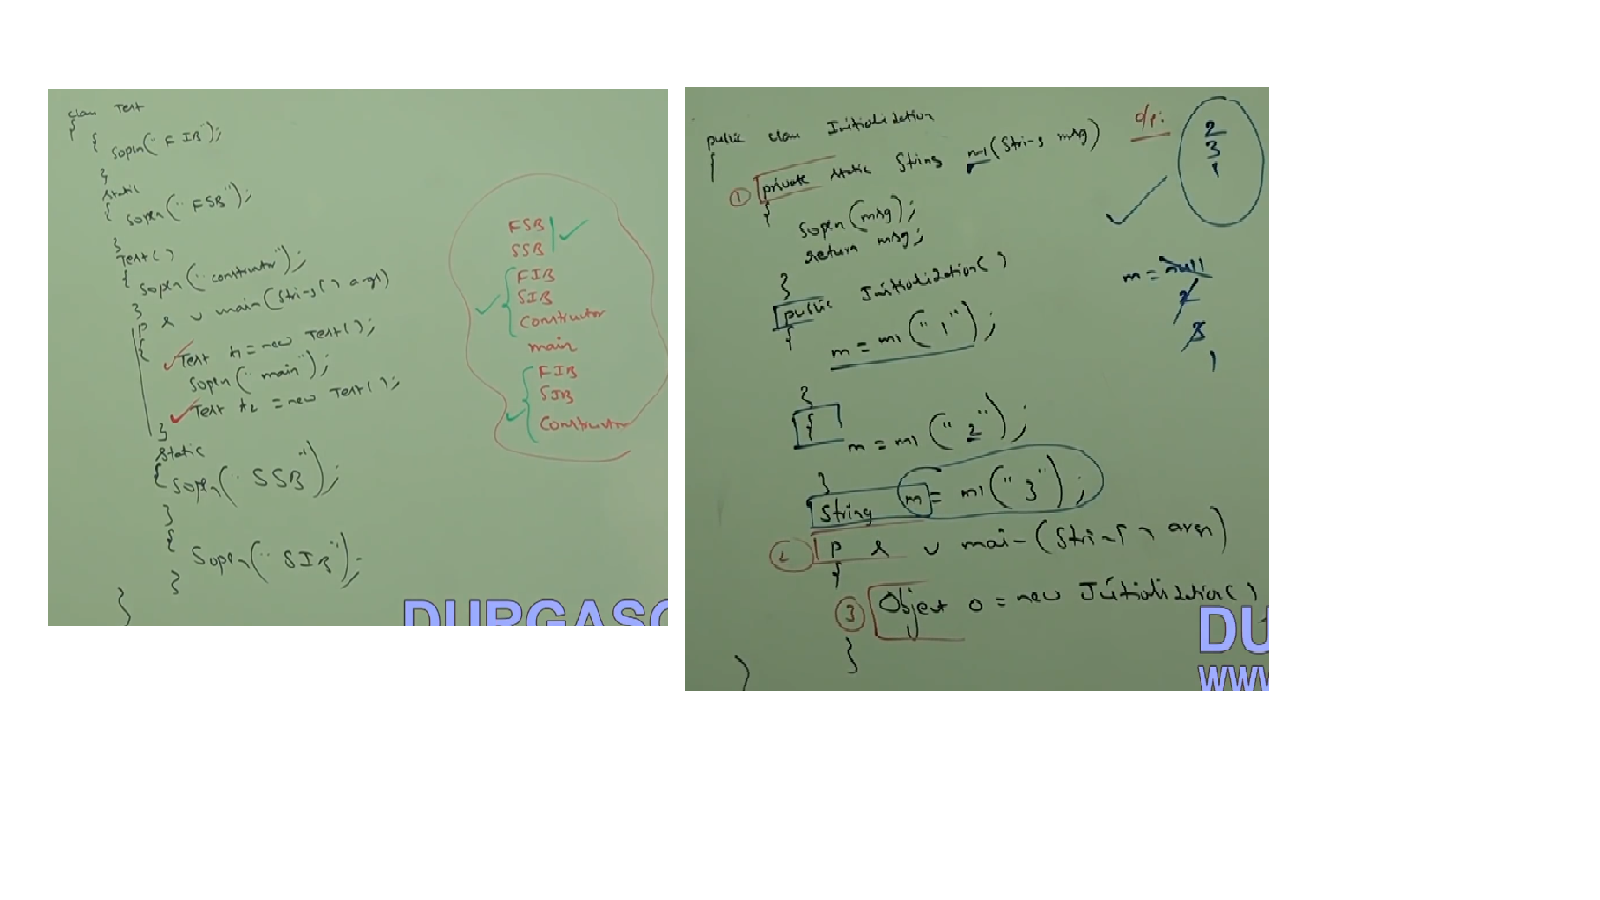 class Test
{
{
Sopln("FIB");
}
static
{
Sopln("FSB");
}
Test()
{
Sopln("constructor");
}
p s v main(String[] args)
{
Test t1 = new Test();
Sopln("main");
Test t2 = new Test();
}
static
{
Sopln("SSB");
}
{
Sopln("SIB");
}
}
FSB
SSB
FIB
SIB
Constructor
main
FIB
SIB
Constructor
DURGASO
public class Initialization
{
① private static String m1(String msg)
{
Sopln(msg);
return msg;
}
public Initialization()
{
m = m1("1");
}
{
m = m1("2");
}
String m = m1("3");
② p s v main(String[] args)
{
③ Object o = new Initialization()
}
}
o/p:
2
3
1
m = null
2
3
1
DU
WWW